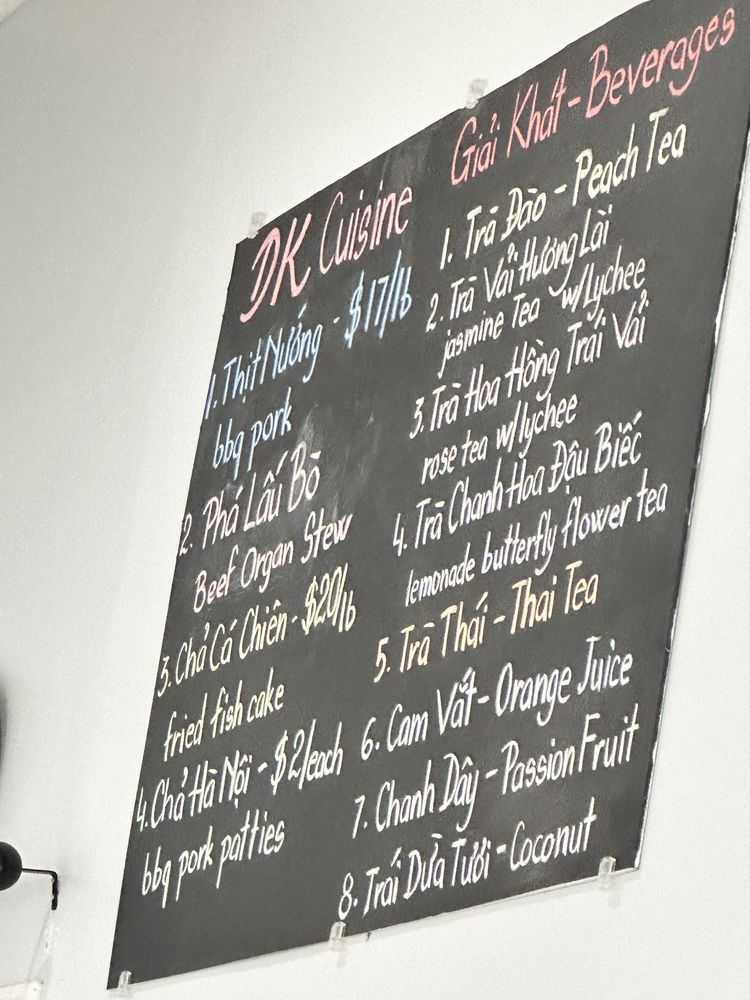 DK Cuisine
1. Thịt Nướng - $17/lb
bbq pork
2. Phá Lấu Bò
Beef Organ Stew
3. Chả Cá Chiên - $20/lb
fried fish cake
4. Chả Hà Nội - $2/each
bbq pork patties
Giải Khát - Beverages
1. Trà Đào - Peach Tea
2. Trà Vải Hương Lài
jasmine Tea w/Lychee
3. Trà Hoa Hồng Trái Vải
rose tea w/lychee
4. Trà Chanh Hoa Đậu Biếc
lemonade butterfly flower tea
5. Trà Thái - Thai Tea
6. Cam Vắt - Orange Juice
7. Chanh Dây - Passion Fruit
8. Trái Dừa Tươi - Coconut